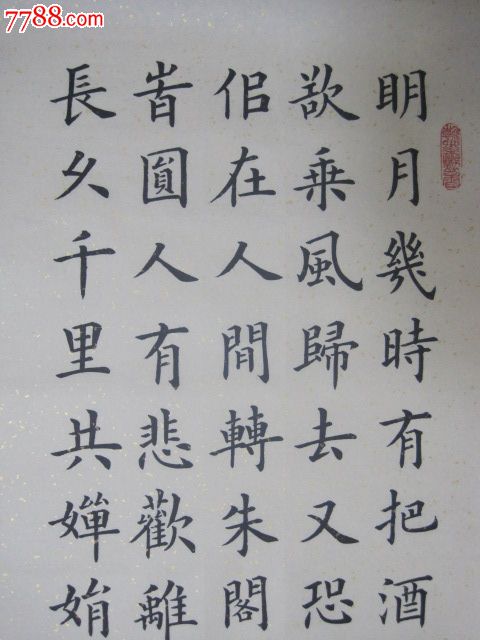 7788.com
明月幾時有把酒
欲乗風歸去又恐
佀在人間轉朱閣
旹圎人有悲歡離
長久千里共嬋娟